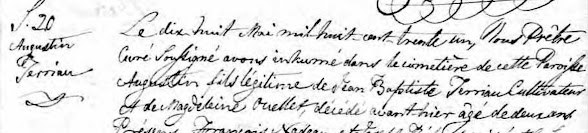 S. 20
Augustin
Terriau
Le dix huit Mai mil huit cent trente un, Nous Prêtre
Curé Soussigné avons inhumé dans le cimetière de cette Paroisse
Augustin fils légitime de Jean Baptiste Terriau Cultivateur
& de Magdeleine Ouellet, décédé avant hier âgé de deux ans
Présens François Nadeau et